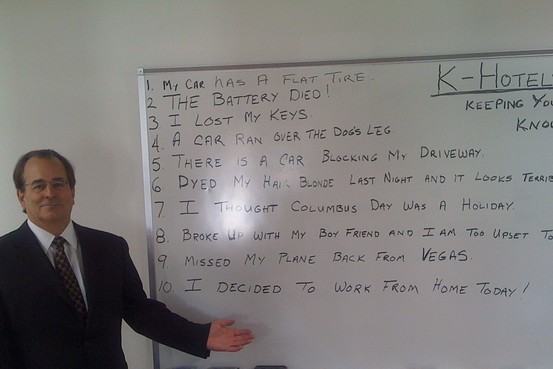 1. MY CAR HAS A FLAT TIRE.
2 THE BATTERY DIED!
3 I LOST MY KEYS.
4. A CAR RAN OVER THE DOG'S LEG.
5. THERE IS A CAR BLOCKING MY DRIVEWAY.
6. DYED MY HAIR BLONDE LAST NIGHT AND IT LOOKS TERRIB
7. I THOUGHT COLUMBUS DAY WAS A HOLIDAY.
8. BROKE UP WITH MY BOY FRIEND AND I AM TOO UPSET TO
9. MISSED MY PLANE BACK FROM VEGAS.
10. I DECIDED TO WORK FROM HOME TODAY!
K-HOTEL
KEEPING YOU
KNO